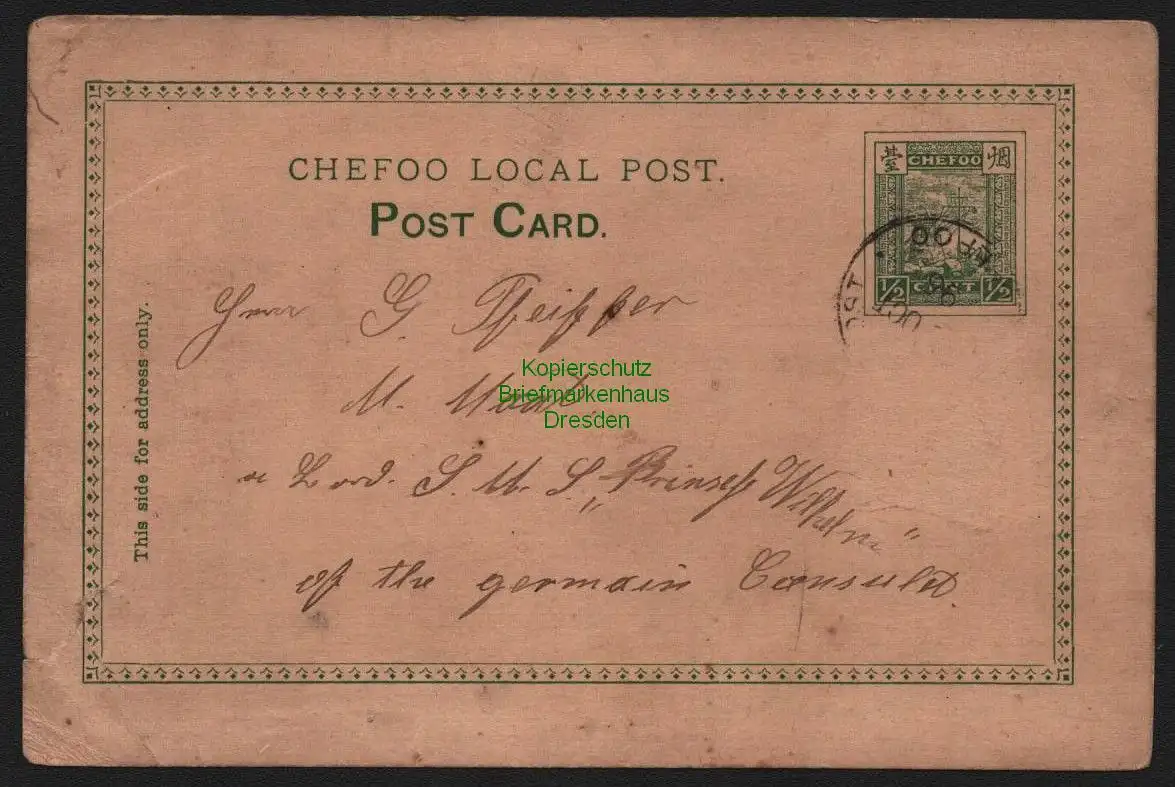 CHEFOO LOCAL POST.
POST CARD.
臺 CHEFOO 烟
1/2 CENT 1/2
OCT
98
This side for address only.
Herr G. Pfeiffer
Kopierschutz
Briefmarkenhaus
Dresden
M. Maat
a Bord. S. M. S. „Prinsess Wilhelm"
of the germain Consulat.